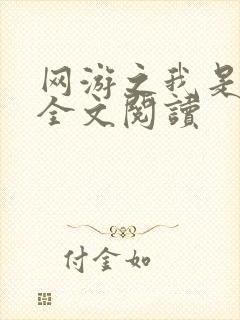 网游之我是
全文阅读
付金如